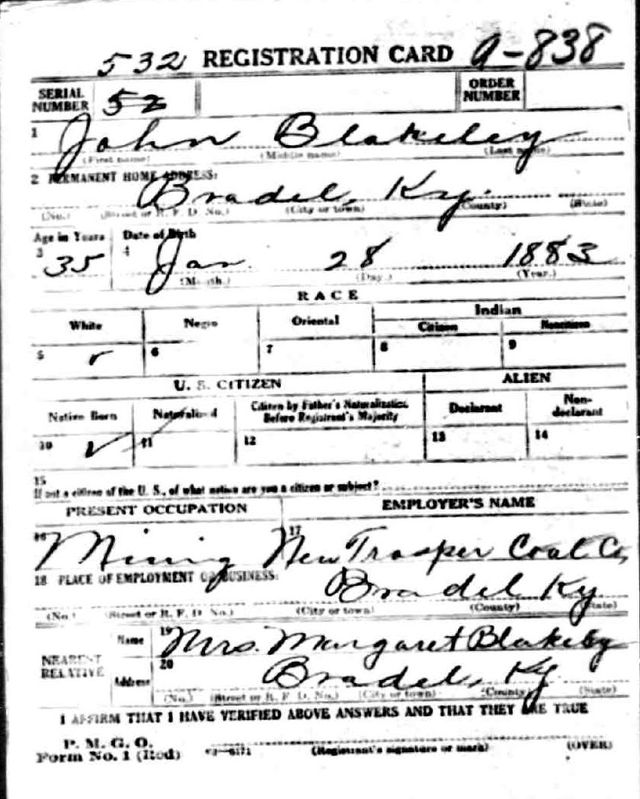 532 REGISTRATION CARD A-838
SERIAL NUMBER 52 ORDER NUMBER
1 John Blakeley
(First name) (Middle name) (Last name)
2 PERMANENT HOME ADDRESS:
Bradel, Ky.
(No.) (Street or R. F. D. No.) (City or town) (County) (State)
Age in Years Date of Birth
3 35 4 Jan. 28 1883
(Month.) (Day.) (Year.)
RACE
White Negro Oriental Indian
Citizen Noncitizen
5 ✓ 6 7 8 9
U. S. CITIZEN ALIEN
Native Born Naturalized Citizen by Father's Naturalization Before Registrant's Majority Declarant Non-declarant
10 ✓ 11 12 13 14
15
If not a citizen of the U. S., of what nation are you a citizen or subject?
PRESENT OCCUPATION EMPLOYER'S NAME
16 Mining 17 New Trosper Coal Co,
18 PLACE OF EMPLOYMENT OR BUSINESS:
Bradel Ky
(No.) (Street or R. F. D. No.) (City or town) (County) (State)
NEAREST RELATIVE Name 19 Mrs. Margaret Blakeley
Address 20 Bradel, Ky
(No.) (Street or R. F. D. No.) (City or town) (County) (State)
I AFFIRM THAT I HAVE VERIFIED ABOVE ANSWERS AND THAT THEY ARE TRUE
P. M. G. O.
Form No. 1 (Red) (Registrant's signature or mark) (OVER)